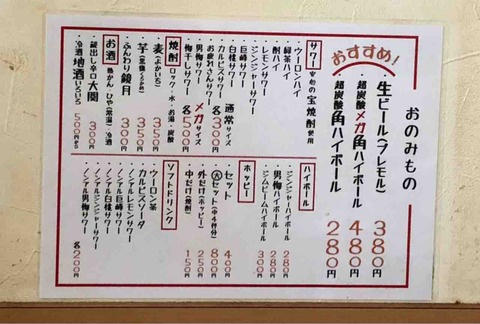 おのみもの
おすすめ!
・生ビール(プレモル) 380円
・超炭酸メガ角ハイボール 480円
・超炭酸角ハイボール 280円
サワー 安心の宝焼酎使用
・ウーロンハイ
・緑茶ハイ
・酎ハイ
・レモンサワー
・ジンジャーサワー
・巨峰サワー
・白桃サワー
・カルピスサワー
・お茶割さんサワー
・男梅サワー
・梅干しサワー
通常サイズ 各300円
メガサイズ 各500円
焼酎 ロック・水・お湯・炭酸
・麦(よかいち) 350円
・芋(黒霧くろきり) 350円
・ふんわり鏡月 300円
お酒 熱かん・ひや(常温)・冷酒
・蔵出し辛口大関 300円
・冷酒 地酒いろいろ 500円から
ハイボール
・ジンジャーハイボール 280円
・男梅ハイボール 280円
・ジムビームハイボール 300円
ホッピー
・セット 400円
・大セット(中4杯分) 800円
・外だけ(ホッピー) 250円
・中だけ(焼酎) 150円
ソフトドリンク
・ウーロン茶
・カルピスソーダ
・ノンアルレモンサワー
・ノンアル巨峰サワー
・ノンアル白桃サワー
・ノンアルジンジャーサワー
・ノンアル男梅サワー
各200円